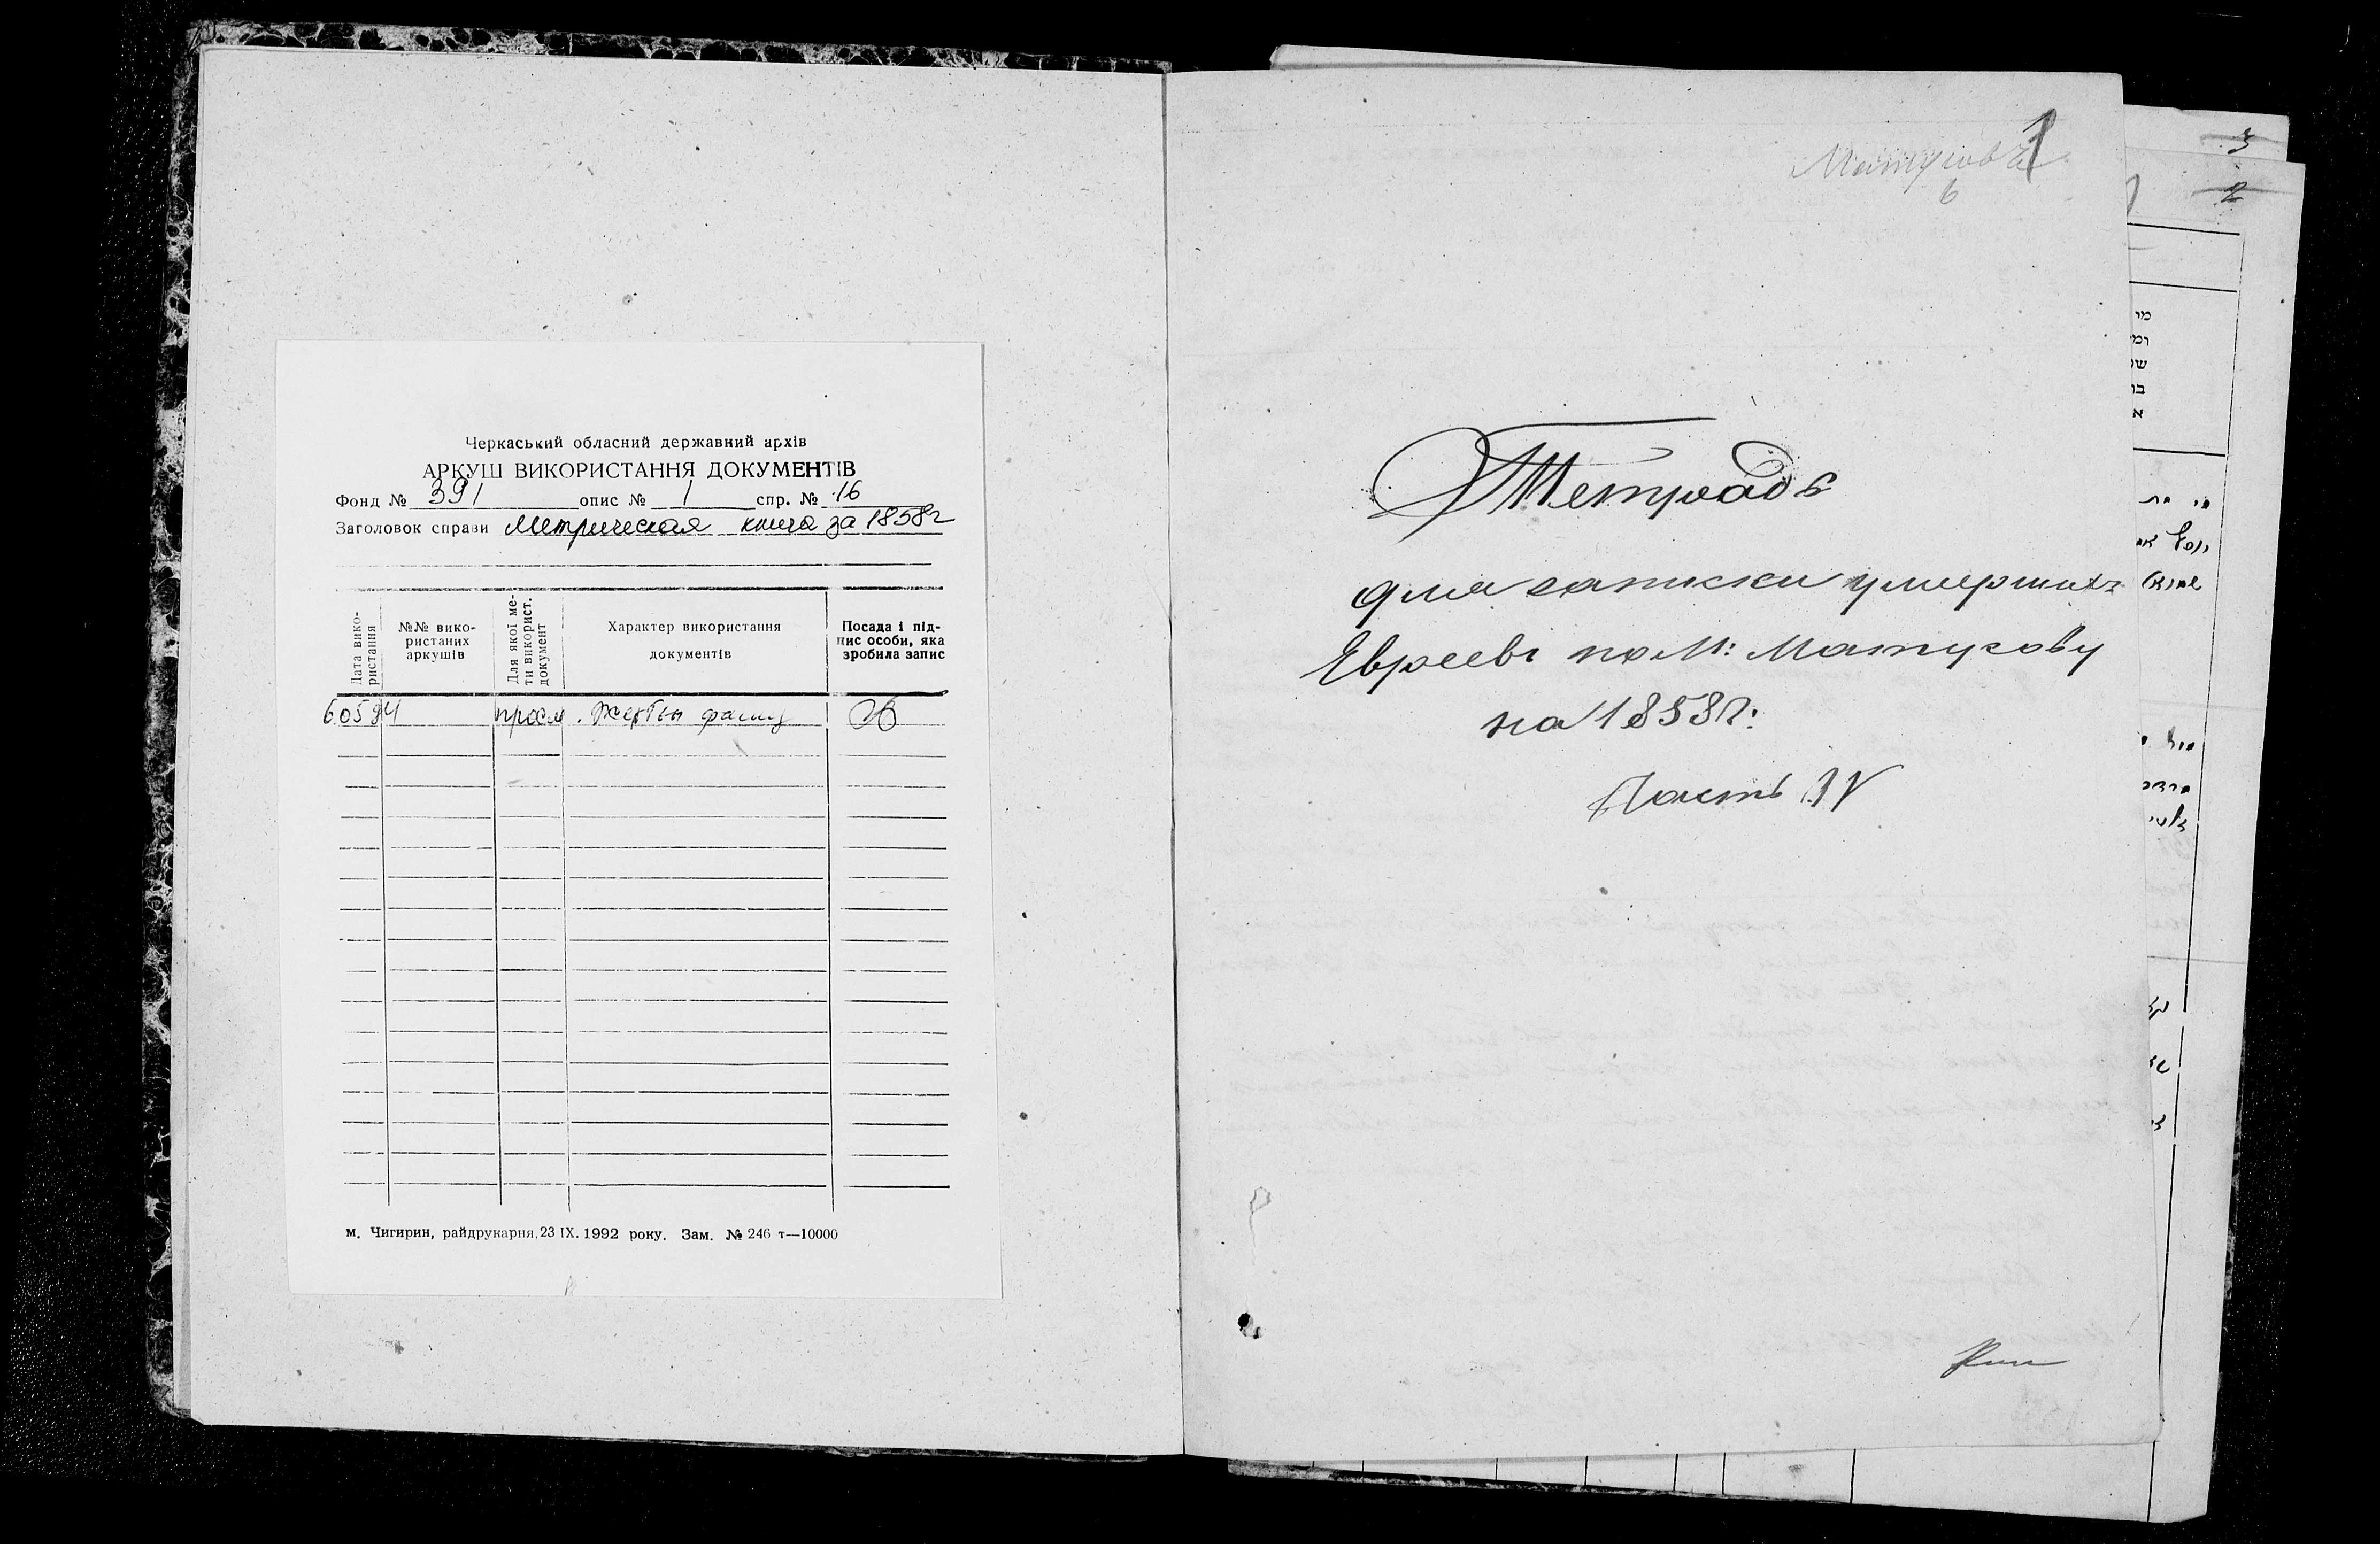 Черкаський обласний державний архів
АРКУШ ВИКОРИСТАННЯ ДОКУМЕНТІВ
Фонд № 391 опис № 1 спр. № 16
Заголовок справи Метрическая книга за 1858г
Дата вико-
ристання
№№ вико-
ристаних
аркушів
Для якої ме-
ти використ.
документ
Характер використання
документів
Посада і під-
пис особи, яка
зробила запис
6.05.94 просм. Жертвы
м. Чигирин, райдрукарня, 23 IX. 1992 року. Зам. № 246 т—10000
1
6
Тетрадь
для записки умерших
Евреевъ по М: Матусову
на 1858 г:
Часть IV
3
2
מי
ומי